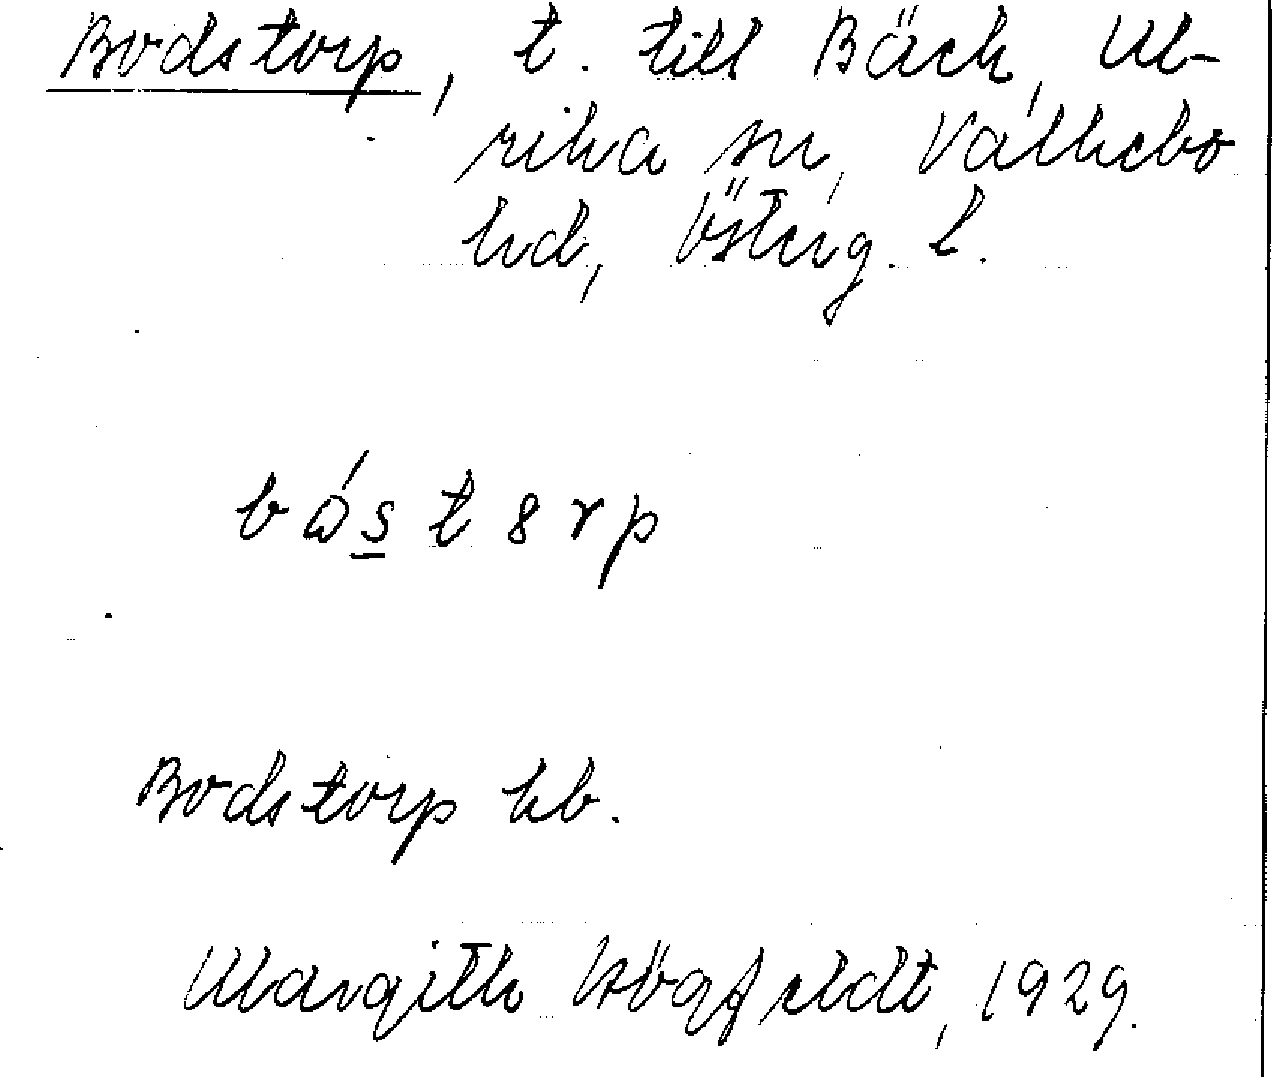 Bodstorp, t. till Bäck, Ul-
rika sn, Valkebo
hd, Österg. l.
bås t 8 r p
Bodstorp kb.
Margith Högfeldt, 1929.